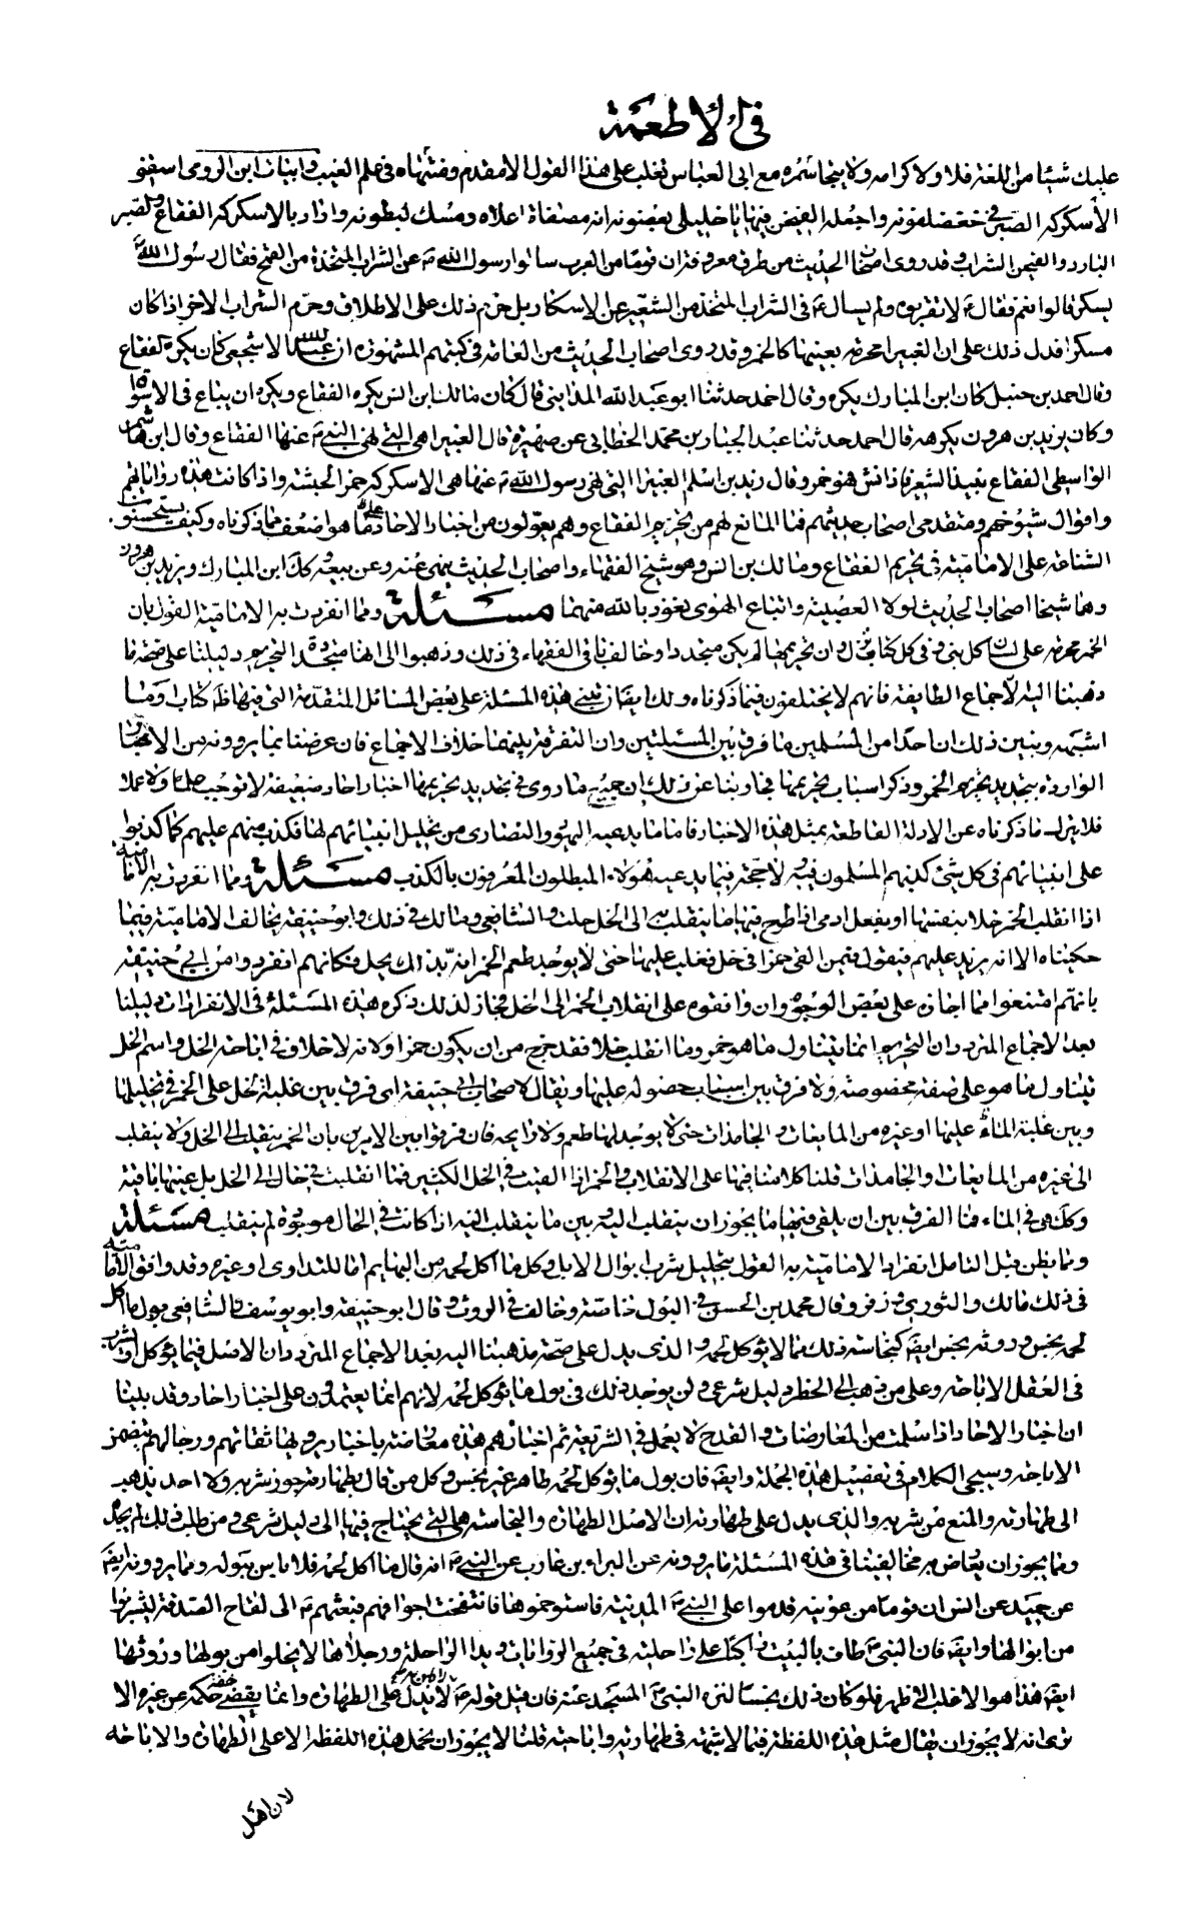 في الأطعمة
عليك شيئا من اللغة فلا ولا كرامة ولا يتجاسر مع ابى العباس ثعلب على هذا القول الا مقدم وفتنهاه في ظلم الغيب وابيات ابن الرومى اسقنى
الأسكركة الصنبر في جعضلفونه واجعل القيض فيها يا خليلي بغضونه انه مصفاة اعلاه ومسك لبطونه واراد بالاسكركة الفقاع والصنبر
البارد والقيض الشراب وقد روى اصحاب الحديث من طرق معروفة ان قوما من العرب سالوا رسول الله ص عن الشراب المتخذ من القمح فقال رسول الله
يسكر قالوا نعم فقال ع لا تقربوه ولم يسال ع في الشراب المتخذ من الشعير عن الاسكار بل حرم ذلك على الاطلاق وحرم الشراب الاخر اذا كان
مسكرا فدل ذلك على ان الغبيرا محرمة بعينها كالخمر وقد روى اصحاب الحديث من العامة في كتبهم المشهورة ان عبد الله الاشجعي كان يكره الفقاع
وقال احمد بن حنبل كان ابن المبارك يكرهه وقال احمد حدثنا ابو عبد الله المدايني قال كان مالك ابن انس يكره الفقاع ويكره ان يباع في الاسواق
وكان يزيد بن هرون يكرهه قال احمد حدثنا عبد الجبار بن محمد الخطابى عن ضميرة قال الغبيرا هي التي نهى النبي ص عنها الفقاع وقال ابن هاشم
الواسطى الفقاع نبيذ الشعير فاذا نش فهو خمر وقال زيد بن اسلم الغبيرا التي نهى رسول الله ص عنها هي الاسكركة خمر الحبشة واذا كانت هذه رواياتهم
واقوال شيوخهم ومتقدمى اصحاب حديثهم فما المانع لهم من تحريم الفقاع وهم يعولون من اخبار الاحاد على ما هو اضعف مما ذكرناه وكيف يستحسنون
الشناعة على الامامية في تحريم الفقاع ومالك بن انس وهو شيخ الفقهاء واصحاب الحديث ينهى عنه وعن بيعه وكك ابن المبارك ويزيد بن هرون
وهما شيخا اصحاب الحديث لولا العصبية واتباع الهوى نعوذ بالله منهما مسئلة ومما انفردت به الامامية القول بان
الخمر محرمة على لسان كل نبي وفي كل كتاب نزل وان تحريمها لم يكن متجددا وخالف باقي الفقهاء في ذلك وذهبوا الى انها متجددة التحريم دليلنا على صحة ما
ذهبنا اليه اجماع الطايفة فانهم لا يختلفون فيما ذكرناه ولك ايضا ان تبني هذه المسئلة على بعض المسائل المتقدمة التي فيها ظاهر كتاب وما
اشبهه ويبين ذلك ان احدا من المسلمين ما فرق بين المسئلتين وان التفرقة بينهما خلاف الاجماع فان عرضنا بما يروونه من الاخبار
الواردة بتجديد تحريم الخمر وذكر اسباب تحريمها فجوابنا عن ذلك ان جميع ما روى في تجديد تحريمها اخبار احاد ضعيفة لا توجب علما ولا عملا
فلا يترك ما ذكرناه من الادلة القاطعة بمثل هذه الاخبار فاما ما يدعيه اليهود والنصارى من تحليل انبيائهم لها فكذب منهم عليهم كما كذبوا
على انبيائهم في كل شئ كذبهم المسلمون فيه ولا حجة فيما يدعيه هؤلاء المبطلون المعروفون بالكذب مسئلة ومما انفردت به الامامية
اذا انقلب الخمر خلا بنفسها او بفعل ادمى اذا طرح فيها ما ينقلب به الى الخل حلت والشافعي ومالك في ذلك وابو حنيفة يخالف الامامية فيما
حكيناه الا انه يزيد عليهم فيقول فيمن القى خمرا في خل فغلب عليها حتى لا يوجد طعم الخمر انه بذلك يحل فكانهم انفردوا من ابي حنيفة
بانهم امتنعوا مما اجازه على بعض الوجوه وان وافقوه على انقلاب الخمر الى الخل فجاز لذلك ذكر هذه المسئلة في الانفرادات دليلنا
بعد الاجماع المتردد ان التحريم انما يتناول ما هو خمر وما انقلب خلا فقد خرج من ان يكون خمرا ولانه لا خلاف في اباحة الخل واسم الخل
يتناول ما هو على صفة مخصوصة ولا فرق بين اسباب حصوله عليها ويقال لاصحاب ابي حنيفة اى فرق بين غلبة الخل على الخمر في تحليلها
وبين غلبة الماء عليها او غيره من المايعات والجامدات حتى لا يوجد لها طعم ولا رايحة فان فرقوا بين الامرين بان الخمر ينقلب الى الخل ولا ينقلب
الى غيره من المايعات والجامدات قلنا كلامنا فيها على الانقلاب والخمر اذا القيت في الخل الكثير فما انقلبت في الحال الى الخل بل عينها باقية
وكك هي في الماء فما الفرق بين ان يلقى فيها ما يجوز ان ينقلب اليه وبين ما ينقلب اليه اذا كانت في الحال موجودة لم ينقلب مسئلة
ومما يظن قبل التامل انفراد الامامية به القول بتحليل شرب ابوال الابل وكل ما اكل لحمه من البهايم اما للتداوى او غيره وقد وافق الامامية
في ذلك مالك والثوري وزفر وقال محمد بن الحسن في البول خاصة وخالف في الروث وقال ابو حنيفة وابو يوسف والشافعي بول ما اكل
لحمه نجس وروثه نجس ايضا كنجاسة ذلك مما لا يؤكل لحمه والذى يدل على صحة مذهبنا اليه بعد الاجماع المتردد ان الاصل فيما يؤكل او يشرب
في العقل الاباحة وعلى من ذهب الى الحظر دليل شرعي ولن يوجد ذلك في بول ما يؤكل لحمه لانهم انما يعتمدون على اخبار احاد وقد بينا
ان اخبار الاحاد اذا سلمت من المعارضات والقدح لا يعمل في الشريعة ثم اخبارهم هذه معارضة باخبار يرويها ثقاتهم ورجالهم تتضمن
الاباحة وسيجى الكلام في تفصيل هذه الجملة وايضا فان بول ما يؤكل لحمه طاهر غير نجس وكل من قال بطهارته جوز شربه ولا احد يذهب
الى طهارته والمنع من شربه والذى يدل على طهارته ان الاصل الطهارة والنجاسة هي التي يحتاج فيها الى دليل شرعي ومن طلب ذلك لم يجده
ومما يجوز ان يعارض به مخالفينا في هذه المسئلة ما يروونه عن البراء بن عازب عن النبي ص انه قال ما اكل لحمه فلا باس ببوله ومما يروونه ايضا
عن حميد عن انس ان قوما من عرينة قدموا على النبي ص المدينة فاستوخموها فانتفخت اجوافهم فبعثهم ص الى لقاح الصدقة ليشربوا
من ابوالها وايضا فان النبي ص طاف بالبيت راكبا على راحلته في جميع الروايات ويدا الراحلة ورجلاها لا يخلوا من بولها وروثها
ايضا هذا هو الاغلب الاظهر فلو كان ذلك نجسا لنزه النبي ص المسجد عنه فان قيل قوله ع لا باس به لا يدل على الطهارة وانما يقتضى خفة حكمه عن غيره الا
ترى انه لا يجوز ان يقال مثل هذه اللفظة فيما لا شبهة في طهارته واباحته قلنا لا يجوز ان يحمل هذه اللفظة الا على الطهارة والاباحة
لان اهل